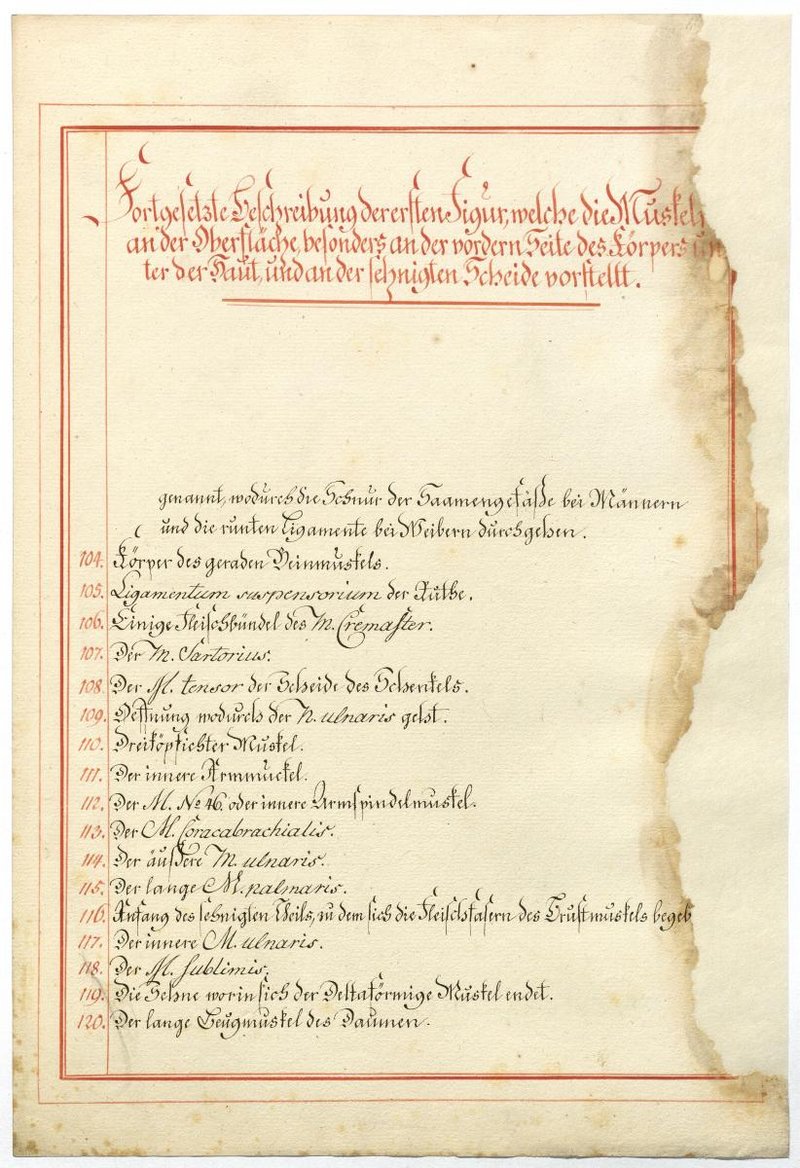 Fortgesetzte Beschreibung der ersten Figur, welche die Muskeln
an der Oberfläche, besonders an der vordern Seite des Körpers un
ter der Haut, und an der sehnigten Scheide vorstellt.
genannt, wodurch die Schnur der Saamengefäße bei Männern
und die runten Ligamente bei Weibern durchgehen.
104. Körper des geraden Beinmuskels.
105. Ligamentum suspensorium der Ruthe.
106. Einige Fleischbündel des M. Cremaster.
107. Der M. Sartorius.
108. Der M. tensor der Scheide des Schenkels.
109. Oeffnung wodurch der N. ulnaris geht.
110. Dreiköpfichter Muskel.
111. Der innere Armmuckel.
112. Der M. No 46. oder innere Armspindelmuskel.
113. Der M. Coracabrachialis.
114. Der äußere M. ulnaris.
115. Der lange M. palmaris.
116. Anfang des sehnigten Theils, zu dem sich die Fleischfasern des Brustmuskels begeb
117. Der innere M. ulnaris.
118. Der M. sublimis.
119. Die Sehne worin sich der Deltaförmige Muskel endet.
120. Der lange Beugmuskel des Daumen.